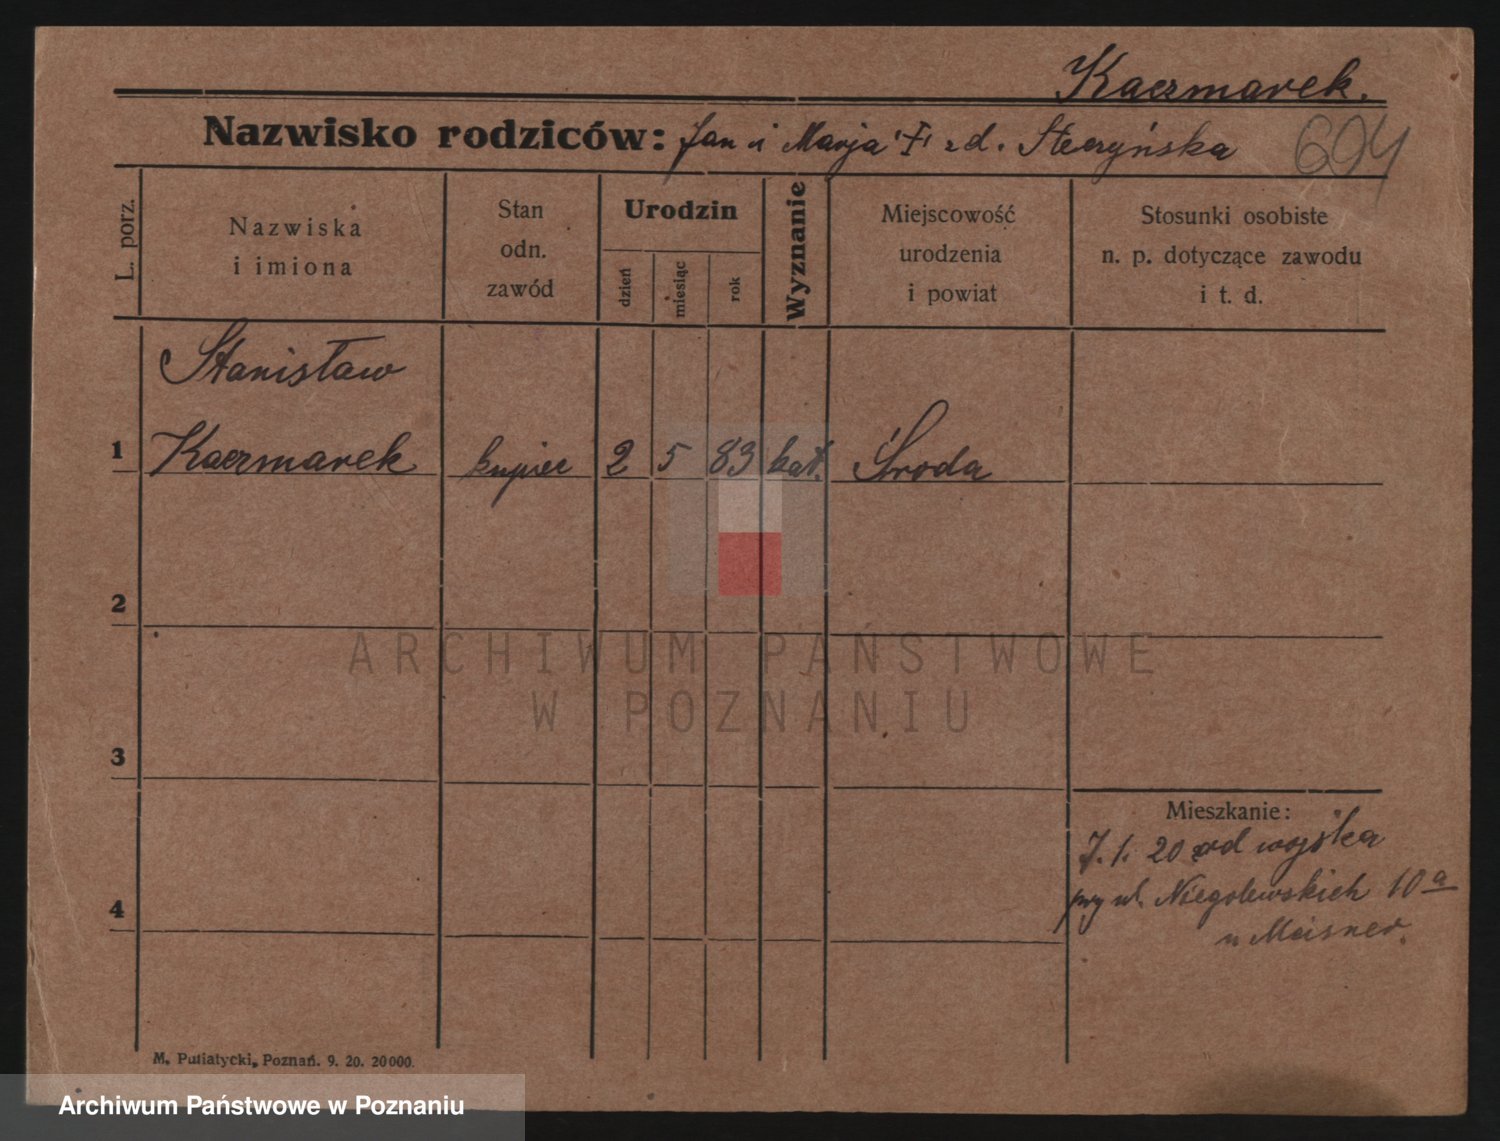 Kaczmarek.
Nazwisko rodziców: Jan i Marja z d. Steczyńska
694
L. porz.
Nazwiska
i imiona
Stan
odn.
zawód
Urodzin
dzień
miesiąc
rok
Wyznanie
Miejscowość
urodzenia
i powiat
Stosunki osobiste
n. p. dotyczące zawodu
i t. d.
Stanisław
1 Kaczmarek kupiec 2 5 83 kat. Środa
2
ARCHIWUM PAŃSTWOWE
W POZNANIU
3
Mieszkanie:
7. 1. 20 od wojska
przy ul. Niegolewskich 10 a
4
u Meisner.
M. Putiatycki, Poznań. 9. 20. 20000.
Archiwum Państwowe w Poznaniu